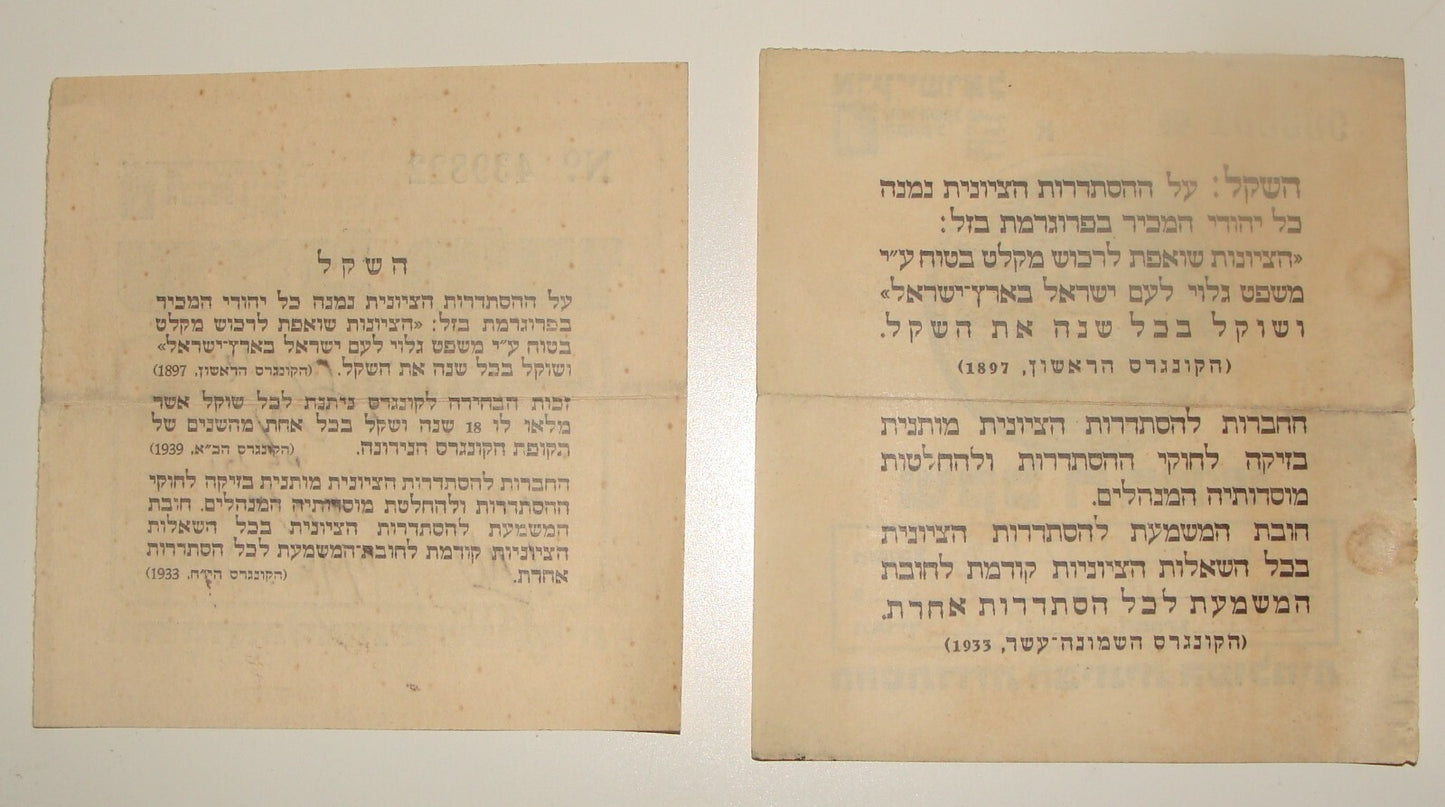 השקל
על ההסתדרות הציונית נמנה כל יהודי המכיר
בפרוגרמת בזל: «הציונות שואפת לרכוש מקלט
בטוח ע״י משפט גלוי לעם ישראל בארץ־ישראל»
ושוקל בכל שנה את השקל. (הקונגרס הראשון, 1897)
זכות הבחירה לקונגרס ניתנת לכל שוקל אשר
מלאו לו 18 שנה ושקל בכל אחת מהשנים של
תקופת הקונגרס הנידונה. (הקונגרס הכ״א, 1939)
החברות להסתדרות הציונית מותנית בזיקה לחוקי
ההסתדרות ולהחלטת מוסדותיה המנהלים. חובת
המשמעת להסתדרות הציונית בכל השאלות
הציוניות קודמת לחובת־המשמעת לכל הסתדרות
אחרת. (הקונגרס הי״ח, 1933)
השקל: על ההסתדרות הציונית נמנה
כל יהודי המכיר בפרוגרמת בזל:
«הציונות שואפת לרכוש מקלט בטוח ע״י
משפט גלוי לעם ישראל בארץ־ישראל»
ושוקל בכל שנה את השקל.
(הקונגרס הראשון, 1897)
החברות להסתדרות הציונית מותנית
בזיקה לחוקי ההסתדרות ולהחלטות
מוסדותיה המנהלים.
חובת המשמעת להסתדרות הציונית
בכל השאלות הציוניות קודמת לחובת
המשמעת לכל הסתדרות אחרת.
(הקונגרס השמונה־עשר, 1933)